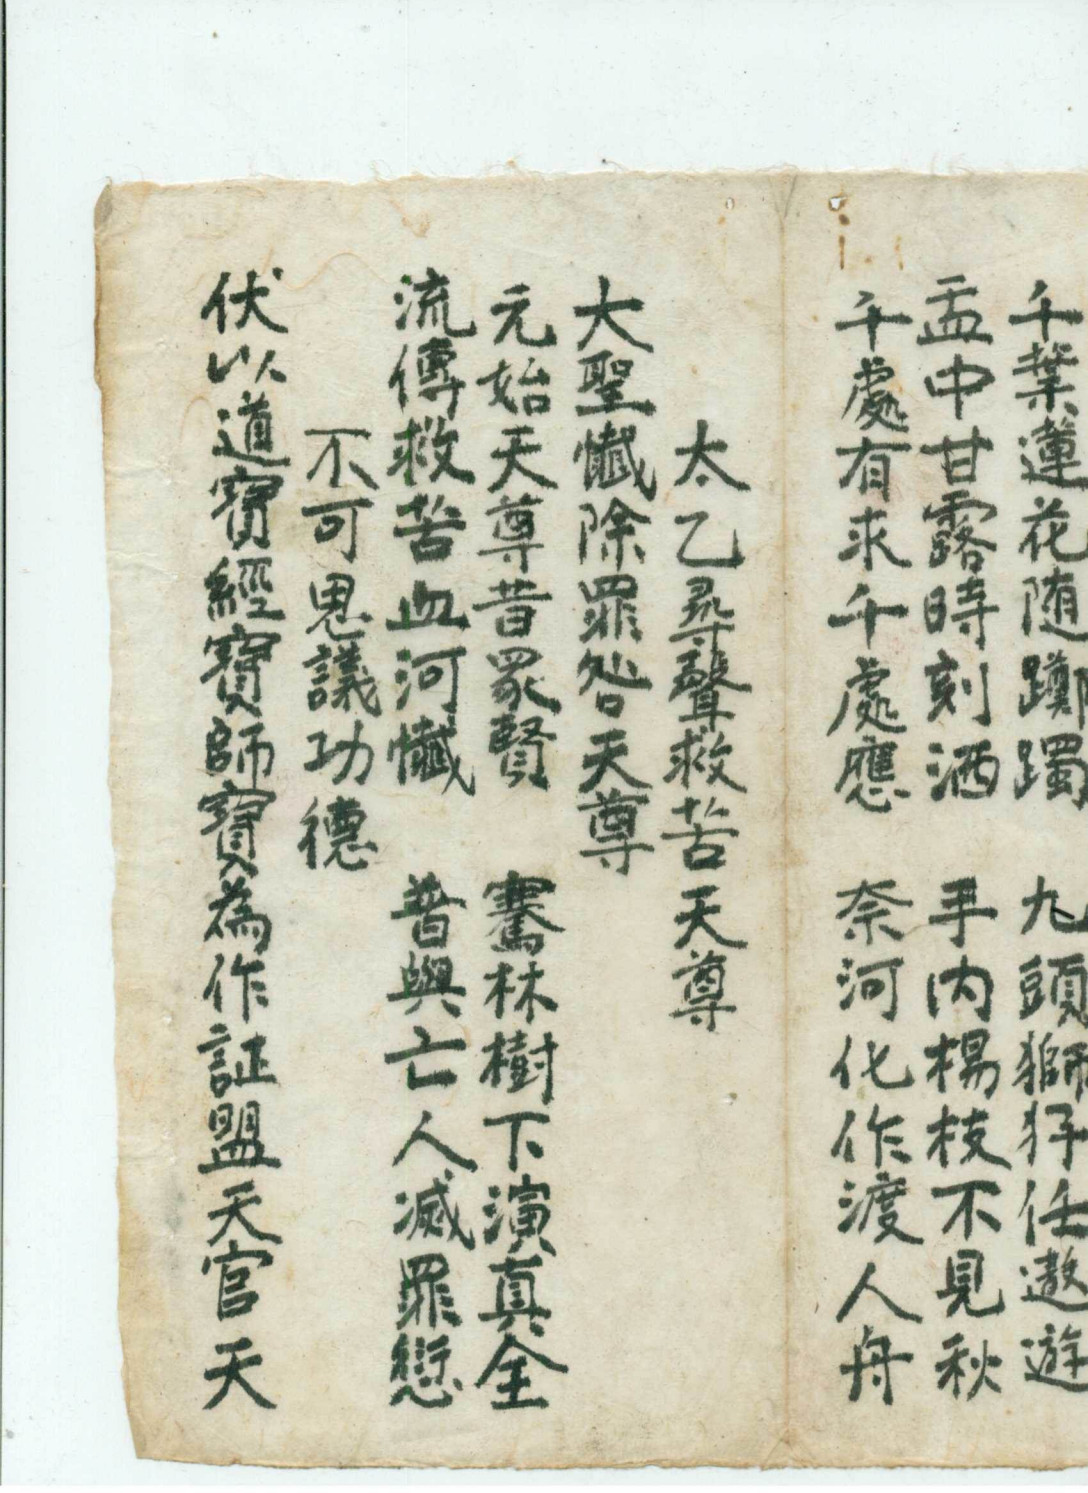 千葉蓮花随躑躅　九頭獅犴任遨遊
盂中甘露時刻洒　手内楊枝不見秋
千處有求千處應　奈河化作渡人舟
太乙尋聲救苦天尊
大聖懺除罪咎天尊
元始天尊昔眾賢　騫林樹下演真全
流傳救苦血河懺　普與亡人滅罪愆
不可思議功德
伏以道寶經寶師寶為作証盟天官天